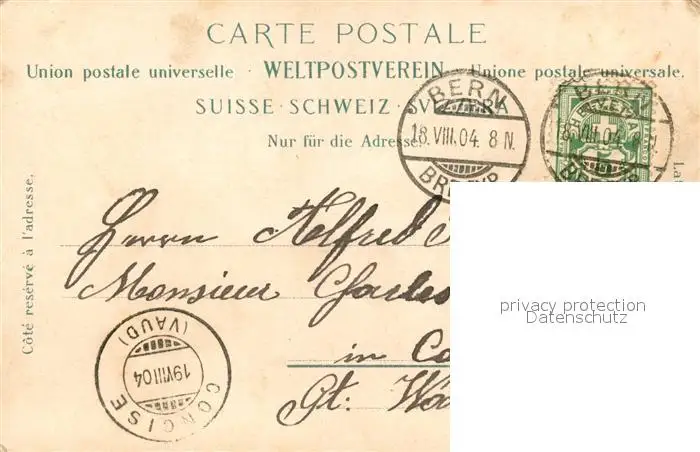 CARTE POSTALE
Union postale universelle · WELTPOSTVEREIN · Unione postale universale.
SUISSE · SCHWEIZ · SVIZZERA
Nur für die Adresse.
Côté réservé à l'adresse.
BERN
18.VIII.04. 8 N.
BERN
HELVETIA
18.VIII.04. 8
5
Herrn Alfred
Monsieur Charles
in Co
Ct. Wa
CONCISE
19 VIII 04
(VAUD)
privacy protection
Datenschutz